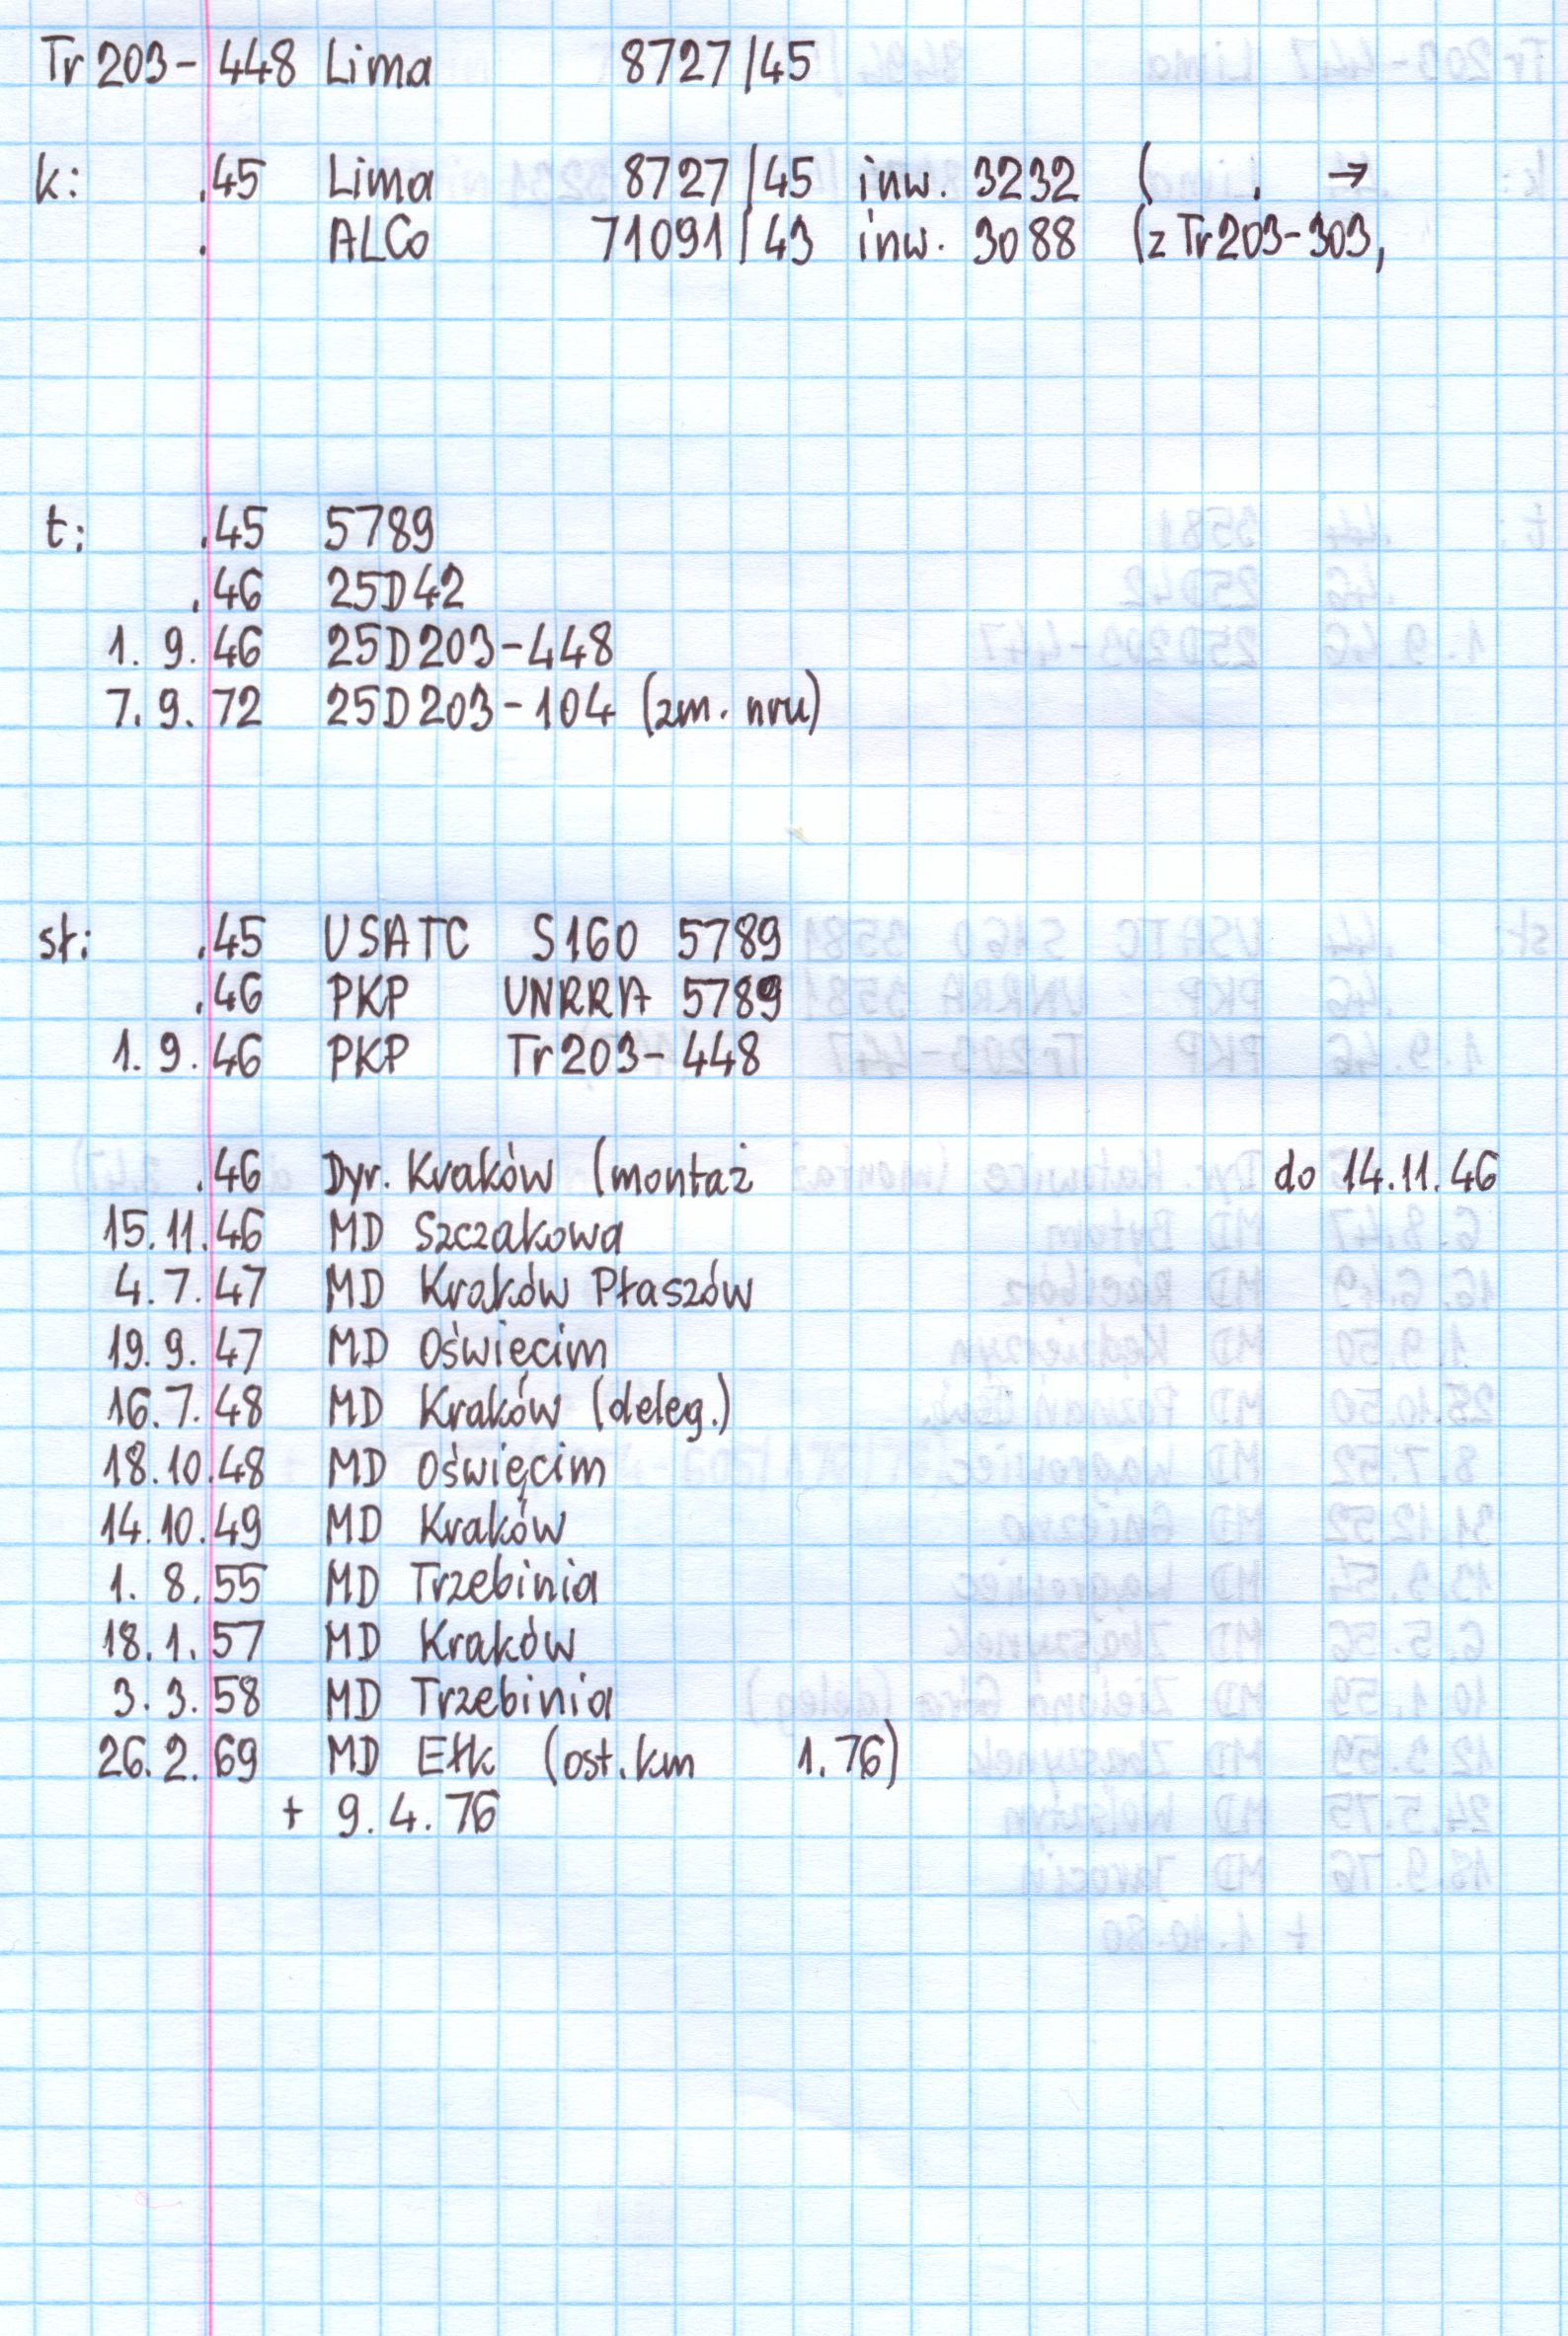 Tr 203-448 Lima 8727/45
k: .45 Lima 8727/45 inw. 3232 ( . →
. ALCo 71091/43 inw. 3088 (z Tr203-303,
t: .45 5789
.46 25D42
1. 9. 46 25D203-448
7. 9. 72 25D203-104 (zm. nru)
st: .45 USATC S160 5789
.46 PKP UNRRA 5789
1. 9. 46 PKP Tr203-448
.46 Dyr. Kraków (montaż do 14.11.46
15.11.46 MD Szczakowa
4. 7. 47 MD Kraków Płaszów
19. 9. 47 MD Oświęcim
16. 7. 48 MD Kraków (deleg.)
18.10.48 MD Oświęcim
14.10.49 MD Kraków
1. 8. 55 MD Trzebinia
18. 1. 57 MD Kraków
3. 3. 58 MD Trzebinia
26. 2. 69 MD Ełk (ost. km 1.76)
+ 9. 4. 76